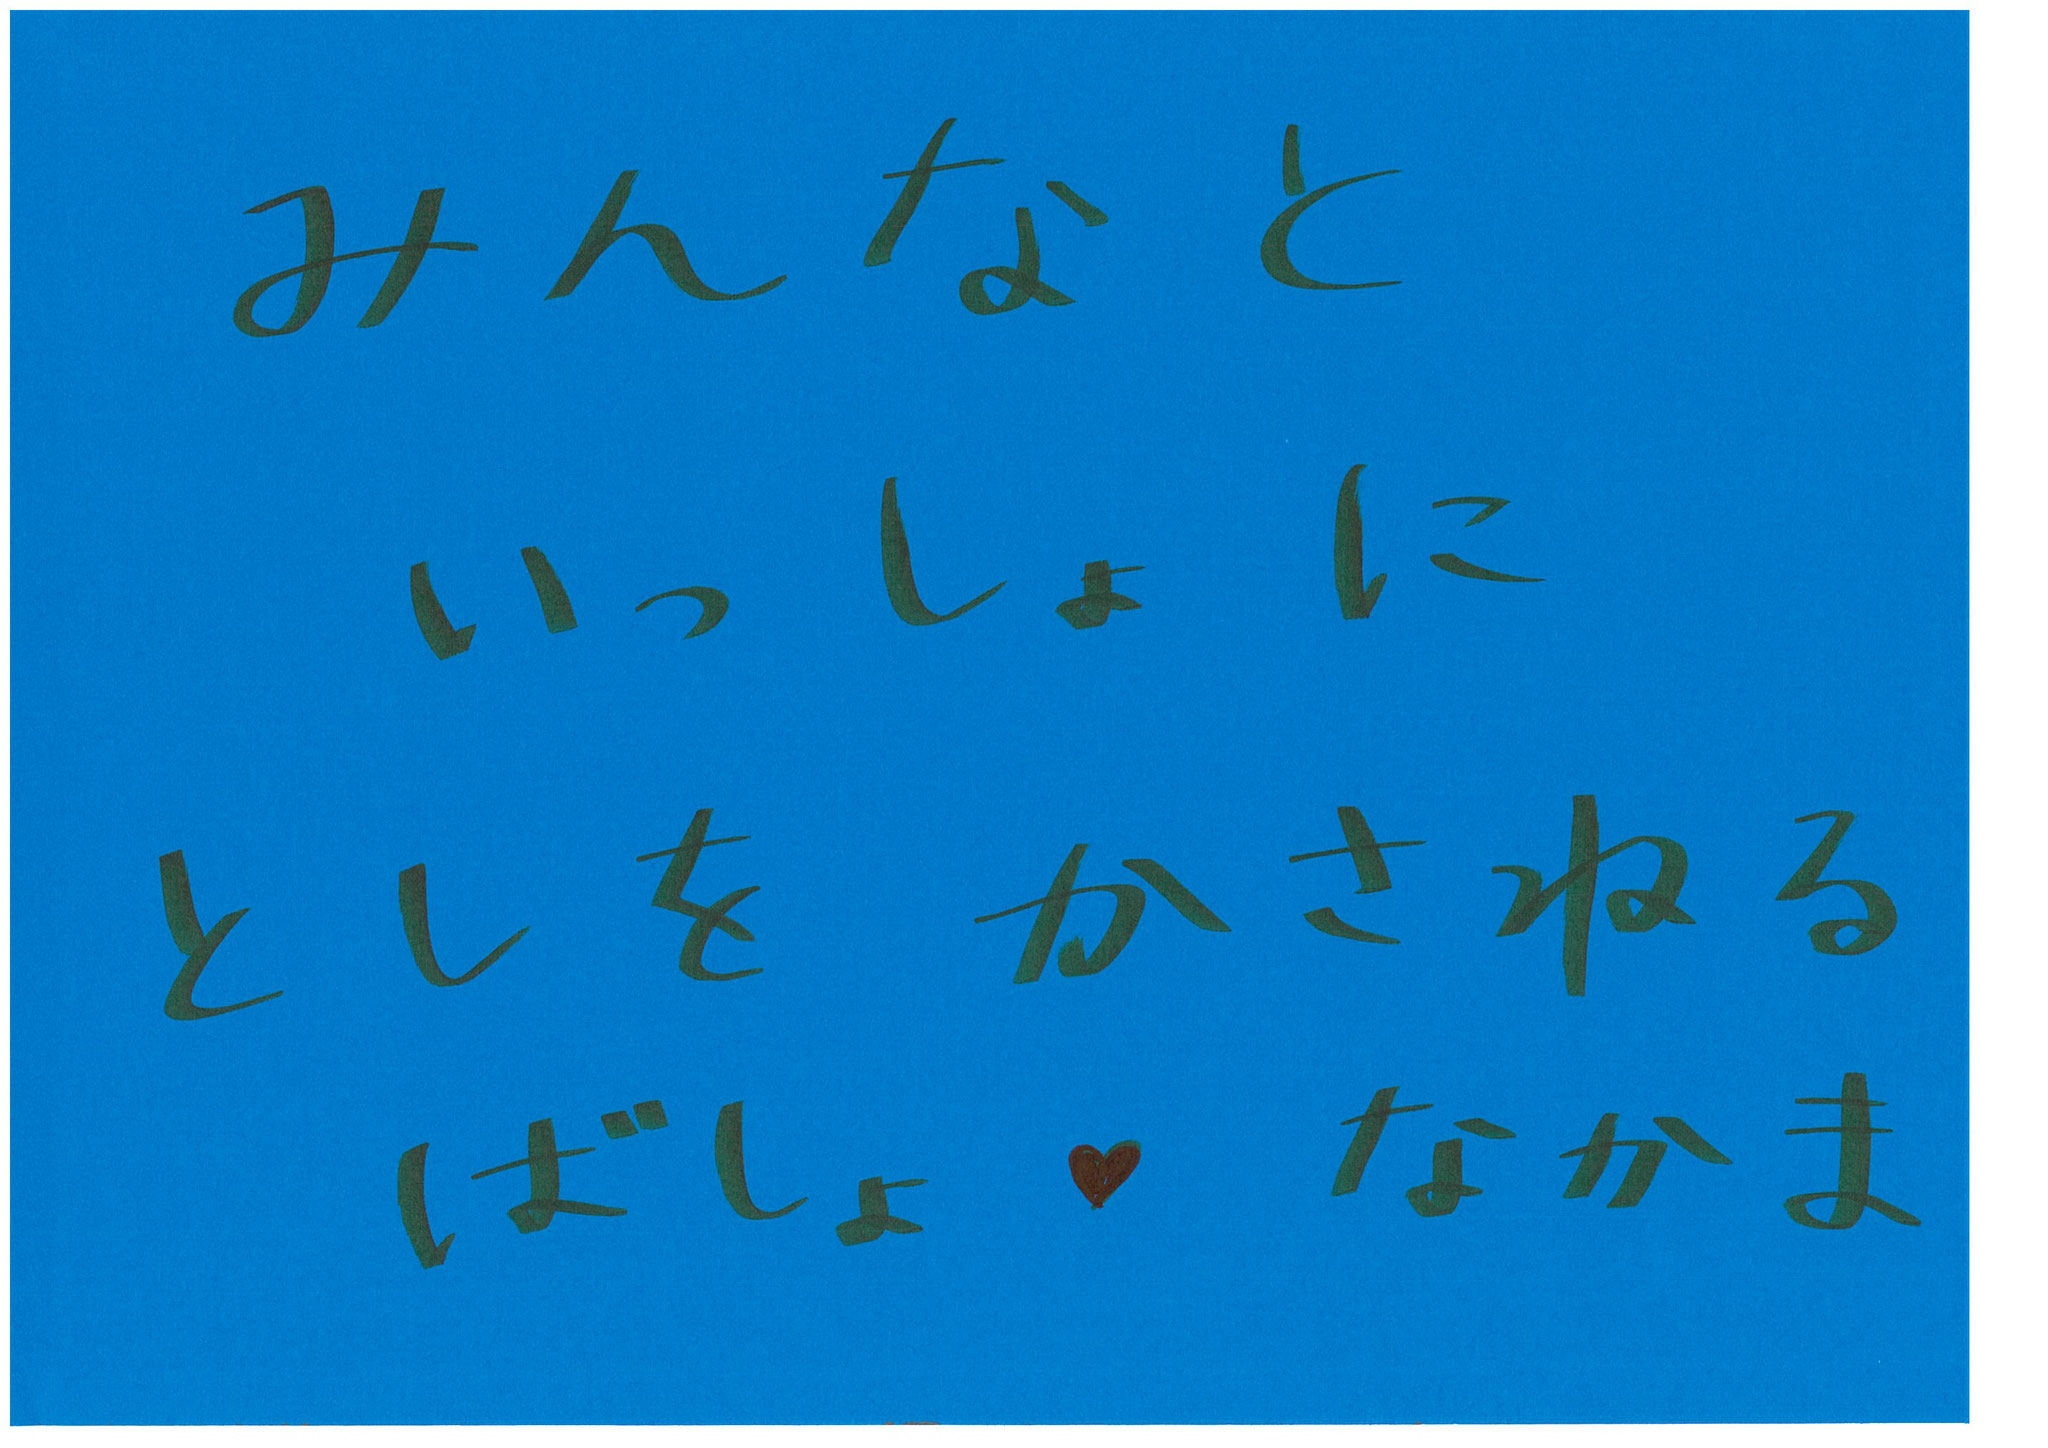 みんなと
いっしょに
としを かさねる
ばしょ♥ なかま